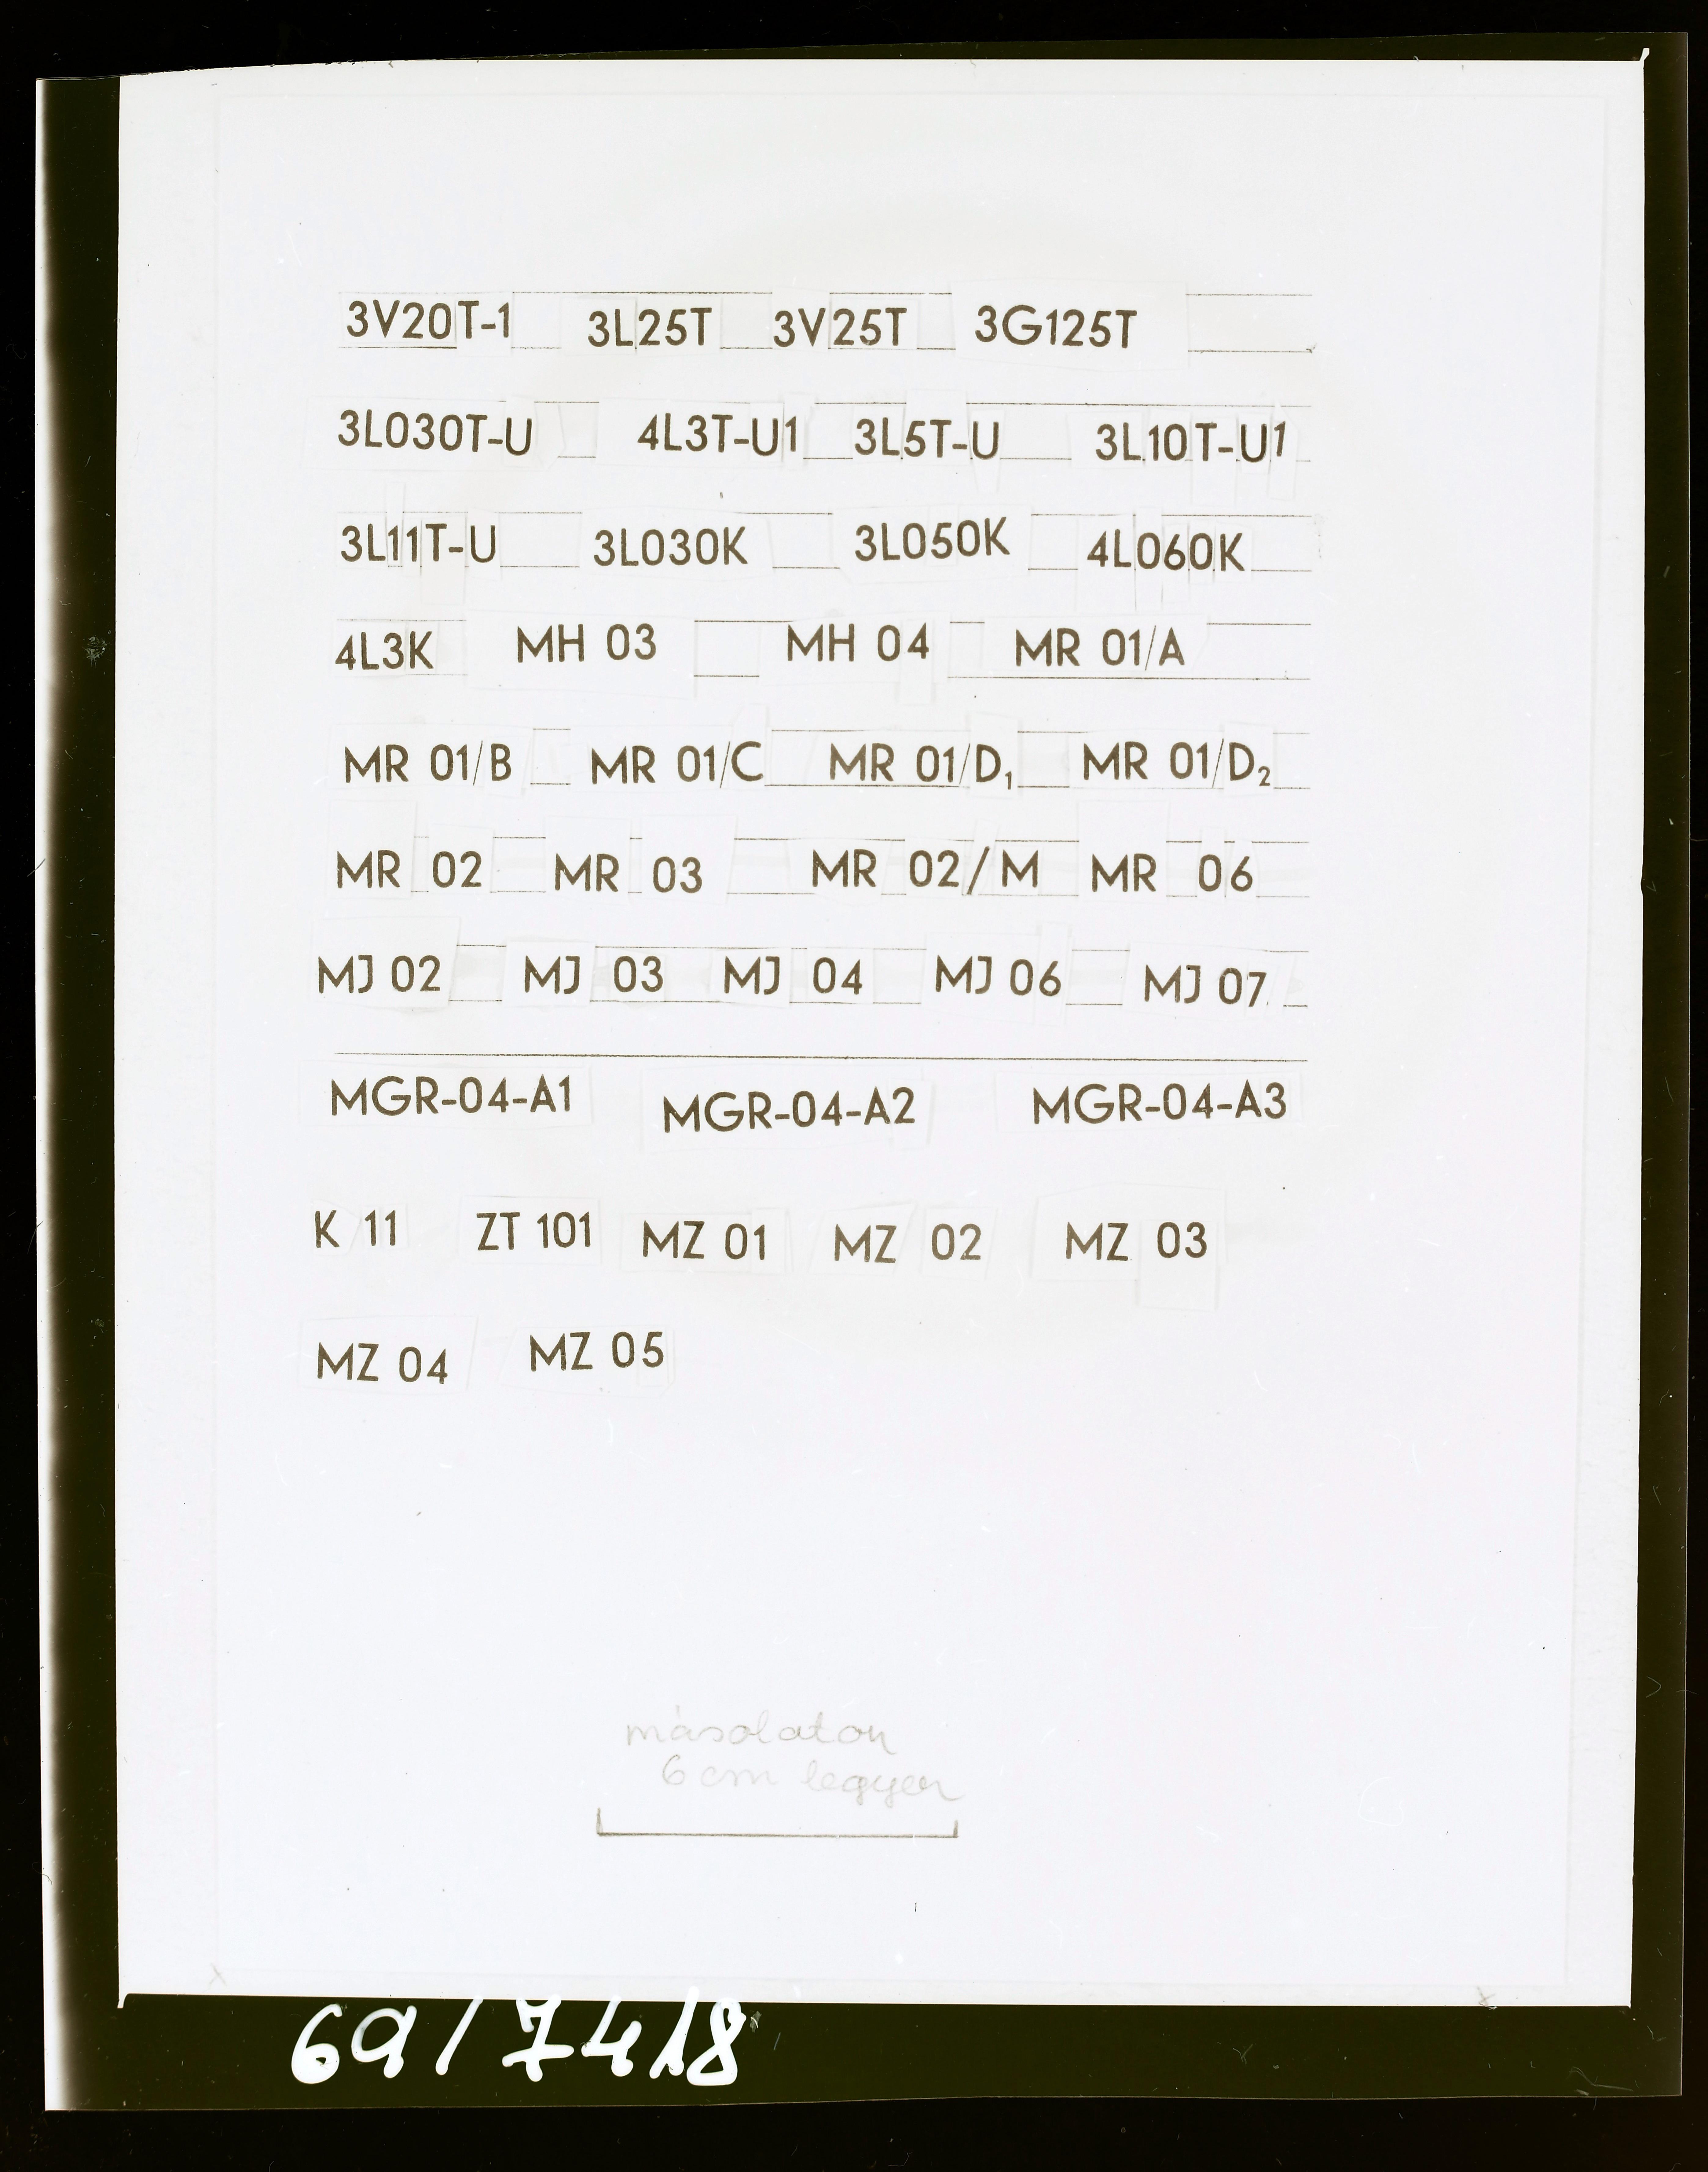 3V20T-1 3L25T 3V25T 3G125T
3L030T-U 4L3T-U1 3L5T-U 3L10T-U1
3L11T-U 3L030K 3L050K 4L060K
4L3K MH 03 MH 04 MR 01/A
MR 01/B MR 01/C MR 01/D₁ MR 01/D₂
MR 02 MR 03 MR 02/M MR 06
MJ 02 MJ 03 MJ 04 MJ 06 MJ 07
MGR-04-A1 MGR-04-A2 MGR-04-A3
K 11 ZT 101 MZ 01 MZ 02 MZ 03
MZ 04 MZ 05
másolaton
6 cm legyen
69/7418